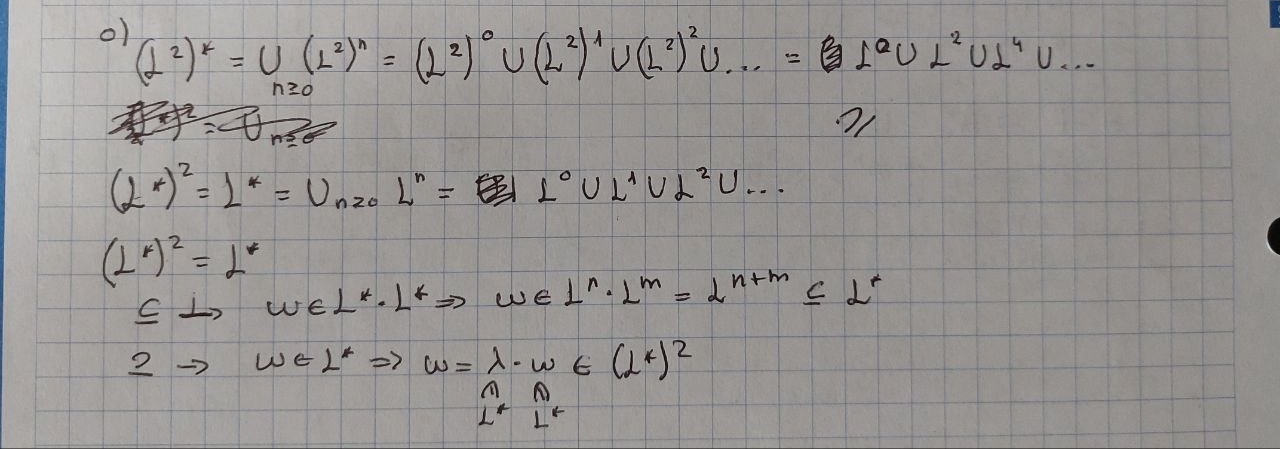 o) (L²)* = ∪ₙ≥₀ (L²)ⁿ = (L²)⁰ ∪ (L²)¹ ∪ (L²)² ∪ ... = L⁰ ∪ L² ∪ L⁴ ∪ ...
(L*)² = L* = ∪ₙ≥₀ Lⁿ = L⁰ ∪ L¹ ∪ L² ∪ ...
(L*)² = L*
⊆ ↦ w ∈ L* · L* ⇒ w ∈ Lⁿ · Lᵐ = Lⁿ⁺ᵐ ⊆ L*
⊇ → w ∈ L* ⇒ w = λ · w ∈ (L*)²
∈ ∈
L* L*